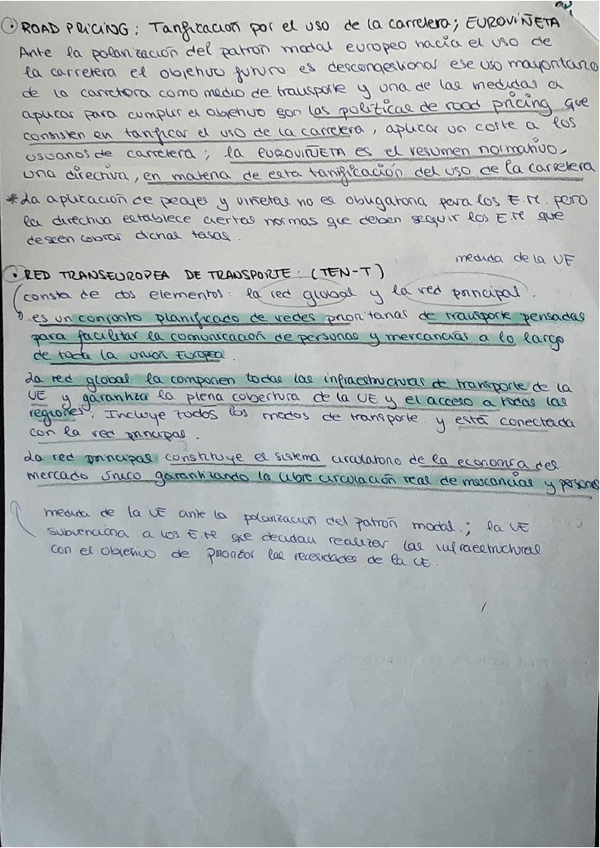 ROAD PRICING: Tarificación por el uso de la carretera; EUROVIÑETA
Ante la polarización del patrón modal europeo hacia el uso de
la carretera el objetivo futuro es descongestionar ese uso mayoritario
de la carretera como medio de transporte y una de las medidas a
aplicar para cumplir el objetivo son las políticas de road pricing que
consisten en tarificar el uso de la carretera, aplicar un coste a los
usuarios de carretera; la EUROVIÑETA es el resumen normativo,
una directiva, en materia de esta tarificación del uso de la carretera
*La aplicación de peajes y viñetas no es obligatoria para los E.M. pero
la directiva establece ciertas normas que deben seguir los E.M que
deseen cobrar dichas tasas.
medida de la UE
RED TRANSEUROPEA DE TRANSPORTE: (TEN-T)
consta de dos elementos: la red global y la red principal.
es un conjunto planificado de redes prioritarias de transporte pensadas
para facilitar la comunicación de personas y mercancías a lo largo
de toda la Unión Europea.
La red global la componen todas las infraestructuras de transporte de la
UE y garantiza la plena cobertura de la UE y el acceso a todas las
regiones. Incluye todos los modos de transporte y está conectada
con la red principal.
La red principal constituye el sistema circulatorio de la economía del
mercado único garantizando la libre circulación real de mercancías y personas
medida de la UE ante la polarización del patrón modal; la UE
subvenciona a los E.M que decidan realizar las infraestructuras
con el objetivo de priorizar las necesidades de la UE.